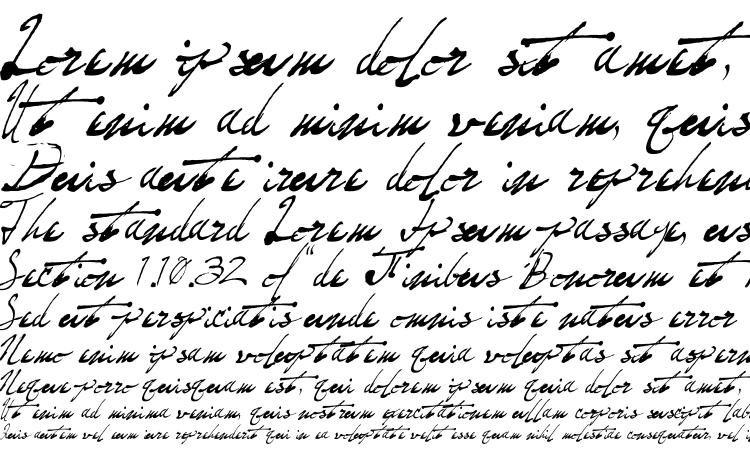 Lorem ipsum dolor sit amet,
Ut enim ad minim veniam, quis
Duis aute irure dolor in reprehen
The standard Lorem Ipsum passage, us
Section 1.10.32 of "de Finibus Bonorum et
Sed ut perspiciatis unde omnis iste natus error
Nemo enim ipsam voluptatem quia voluptas sit aspern
Neque porro quisquam est, qui dolorem ipsum quia dolor sit amet,
Ut enim ad minima veniam, quis nostrum exercitationem ullam corporis suscipit lab
Quis autem vel eum iure reprehenderit qui in ea voluptate velit esse quam nihil molestiae consequatur, vel i